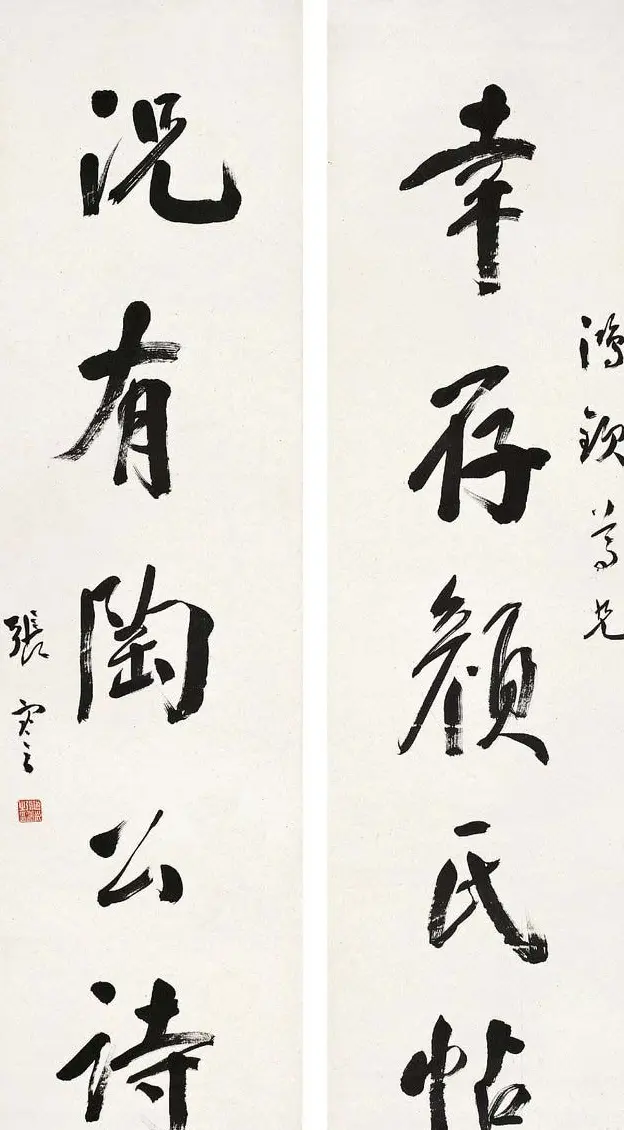 鴻欽尊兄
幸存顏氏帖
況有陶公詩
張寒之